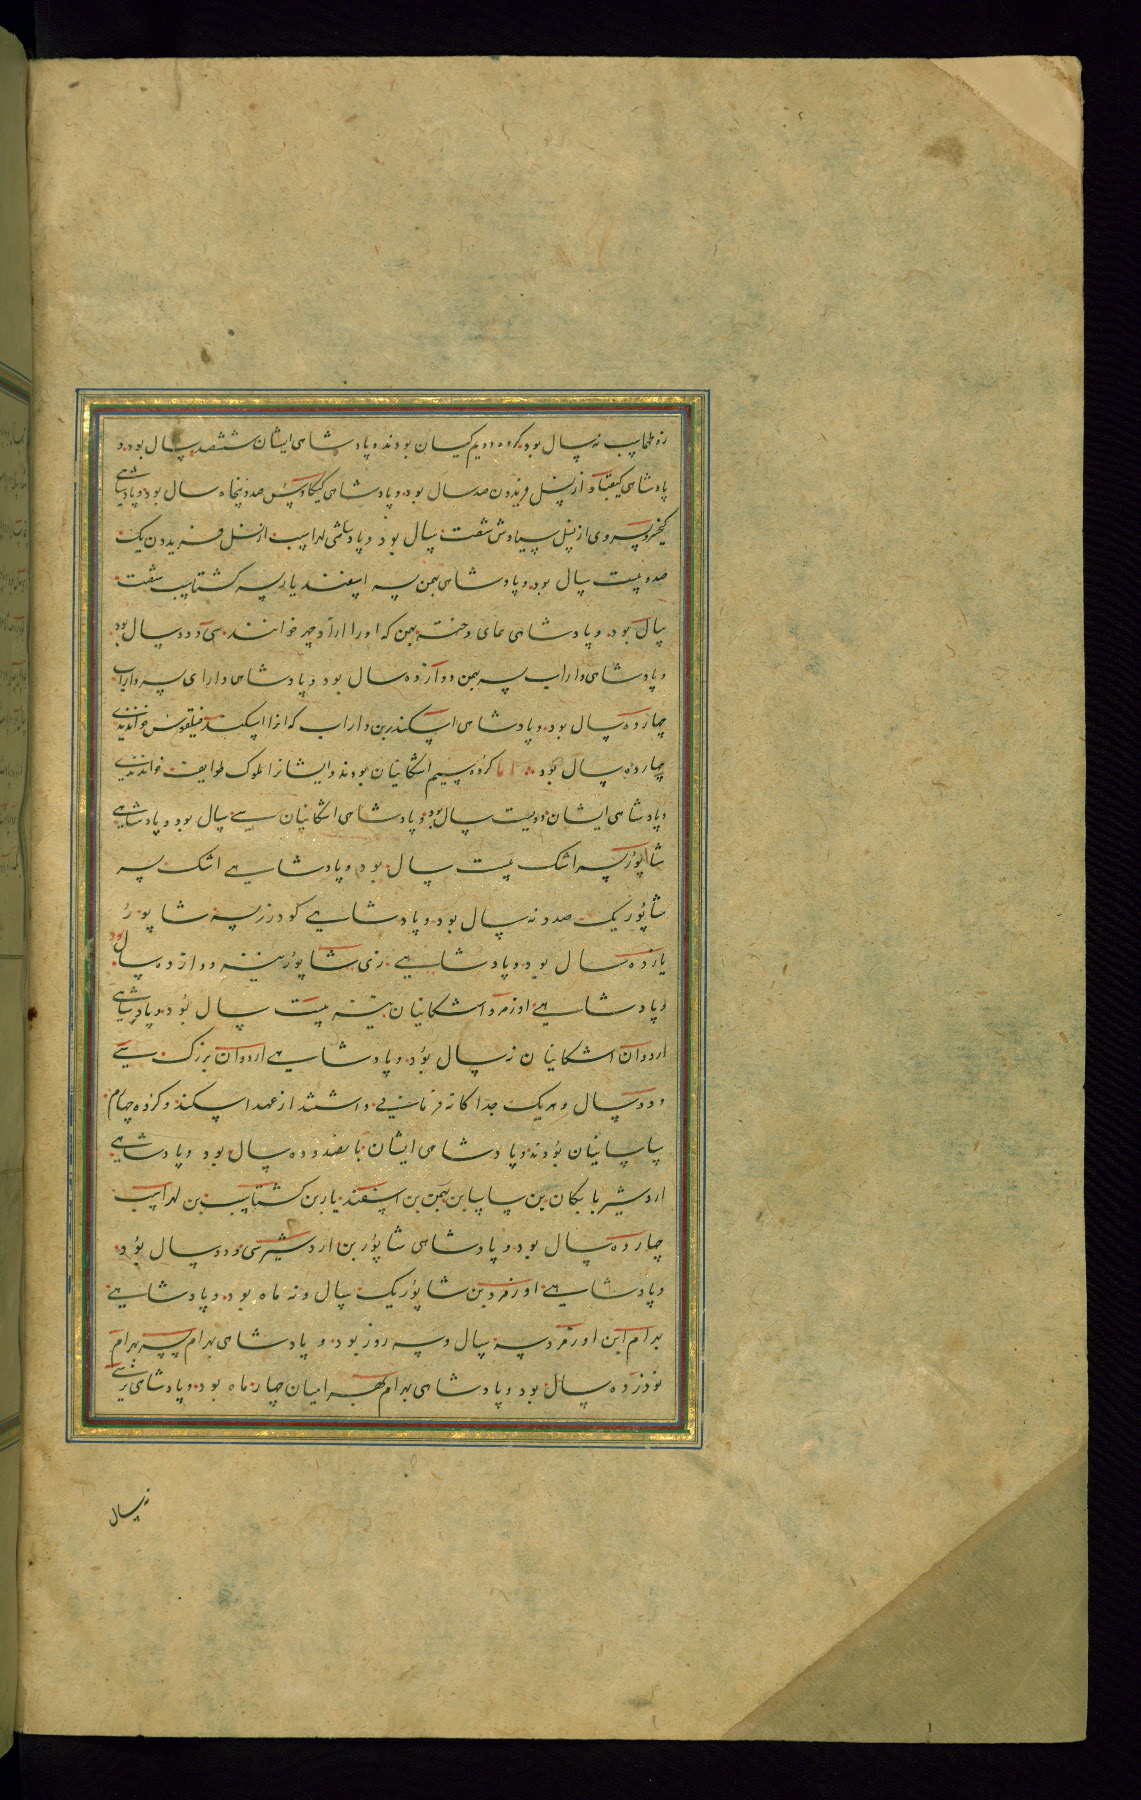 زوطهماسب نه سال بود کروه دویم کیان بودند و پادشاهی ایشان ششصد سال بود و
پادشاهی کیقباد از نسل فریدون صد سال بود و پادشاهی کیکاوس صد و پنجاه سال بود و پادشاهی
کیخسرو از نسل سیاوش شصت سال بود و پادشاهی لهراسب از نسل فریدون یک
صد و بیست سال بود و پادشاهی بهمن پسر اسفندیار پسر کشتاسب شصت
سال بود و پادشاهی همای دختر بهمن که او را ازادچهر خوانند سی و دو سال بود
و پادشاهی داراب پسر بهمن دوازده سال بود و پادشاهی دارای پسر داراب
چهارده سال بود و پادشاهی اسکندر بن داراب که انرا اسکندر فیلقوس خواندندی
چهارده سال بود اما کروه سیم اشکانیان بودند و ایشانرا ملوک طوایف خواندندی
و پادشاهی ایشان دویست سال بود و پادشاهی اشکانیان سی سال بود و پادشاهی
شاپور پسر اشک بیست سال بود و پادشاهی اشک پسر
شاپور یک صد و نه سال بود و پادشاهی کودرز پسر شاپور
یازده سال بود و پادشاهی نرسی شاپور دوازده سال بود
و پادشاهی اورمزد اشکانیان بیست سال بود و پادشاهی
اردوان اشکانیان نه سال بود و پادشاهی اردوان بزرک سی
و دو سال و هریک جداکانه فرمان داشتند از عهد اسکندر و کروه چهارم
ساسانیان بودند و پادشاهی ایشان پانصد و ده سال بود و پادشاهی
اردشیر بابکان بن ساسان بن بهمن بن اسفندیار بن کشتاسب بن لهراسب
چهارده سال بود و پادشاهی شاپور بن اردشیر سی و دو سال بود
و پادشاهی اورمزد بن شاپور یک سال و نه ماه بود و پادشاهی
بهرام ابن اورمزد سه سال و سه روز بود و پادشاهی بهرام پسر بهرام
نوزده سال بود و پادشاهی بهرام بهرامیان چهار ماه بود و پادشاهی نرسی
نه سال